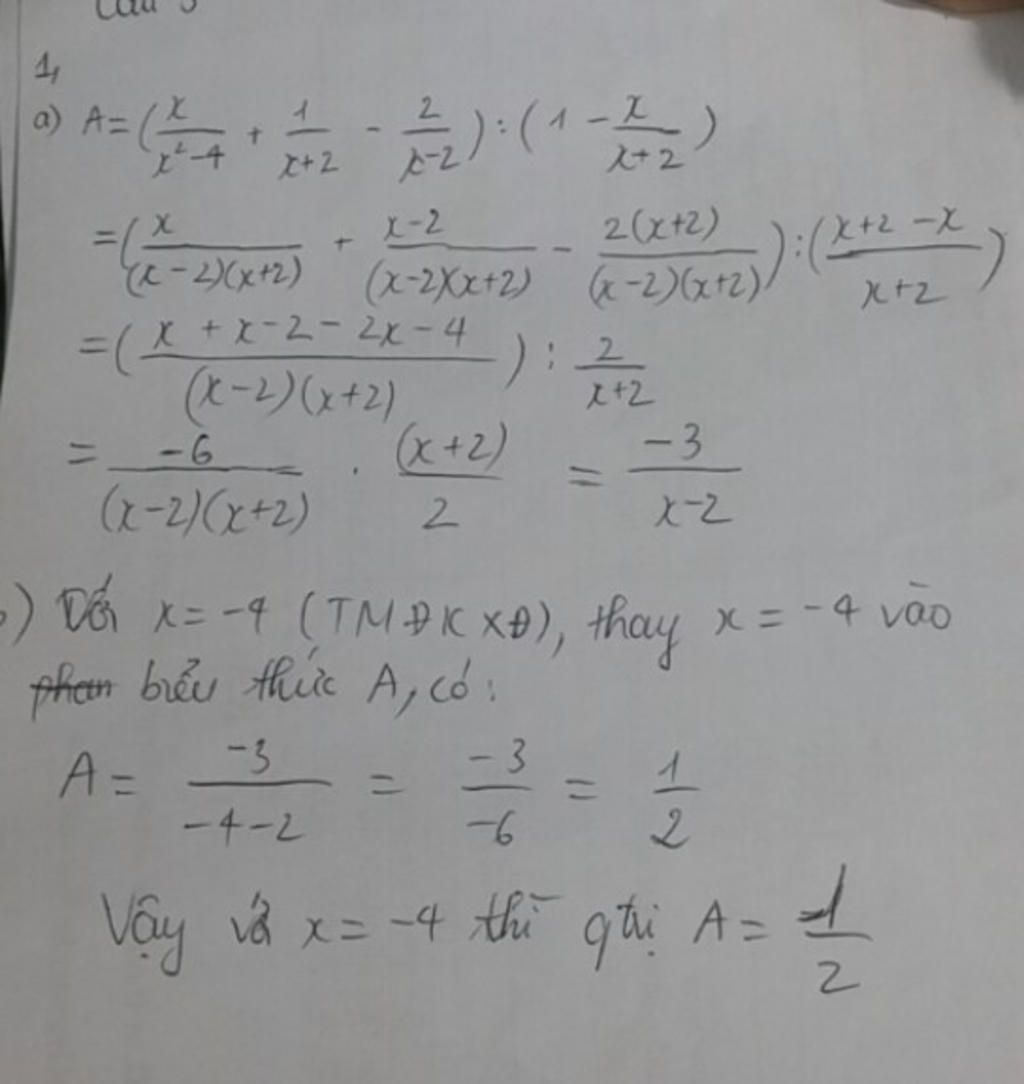 Câu 5
1,
a) A = (x/(x²-4) + 1/(x+2) - 2/(x-2)) : (1 - x/(x+2))
= (x/((x-2)(x+2)) + (x-2)/((x-2)(x+2)) - 2(x+2)/((x-2)(x+2))) : ((x+2-x)/(x+2))
= ((x+x-2-2x-4)/((x-2)(x+2))) : 2/(x+2)
= -6/((x-2)(x+2)) . (x+2)/2 = -3/(x-2)
) x = -4 (TMĐKXĐ), thay x = -4 vào
biểu thức A, có:
A = -3/(-4-2) = -3/-6 = 1/2
Vậy với x = -4 thì gtrị A = 1/2